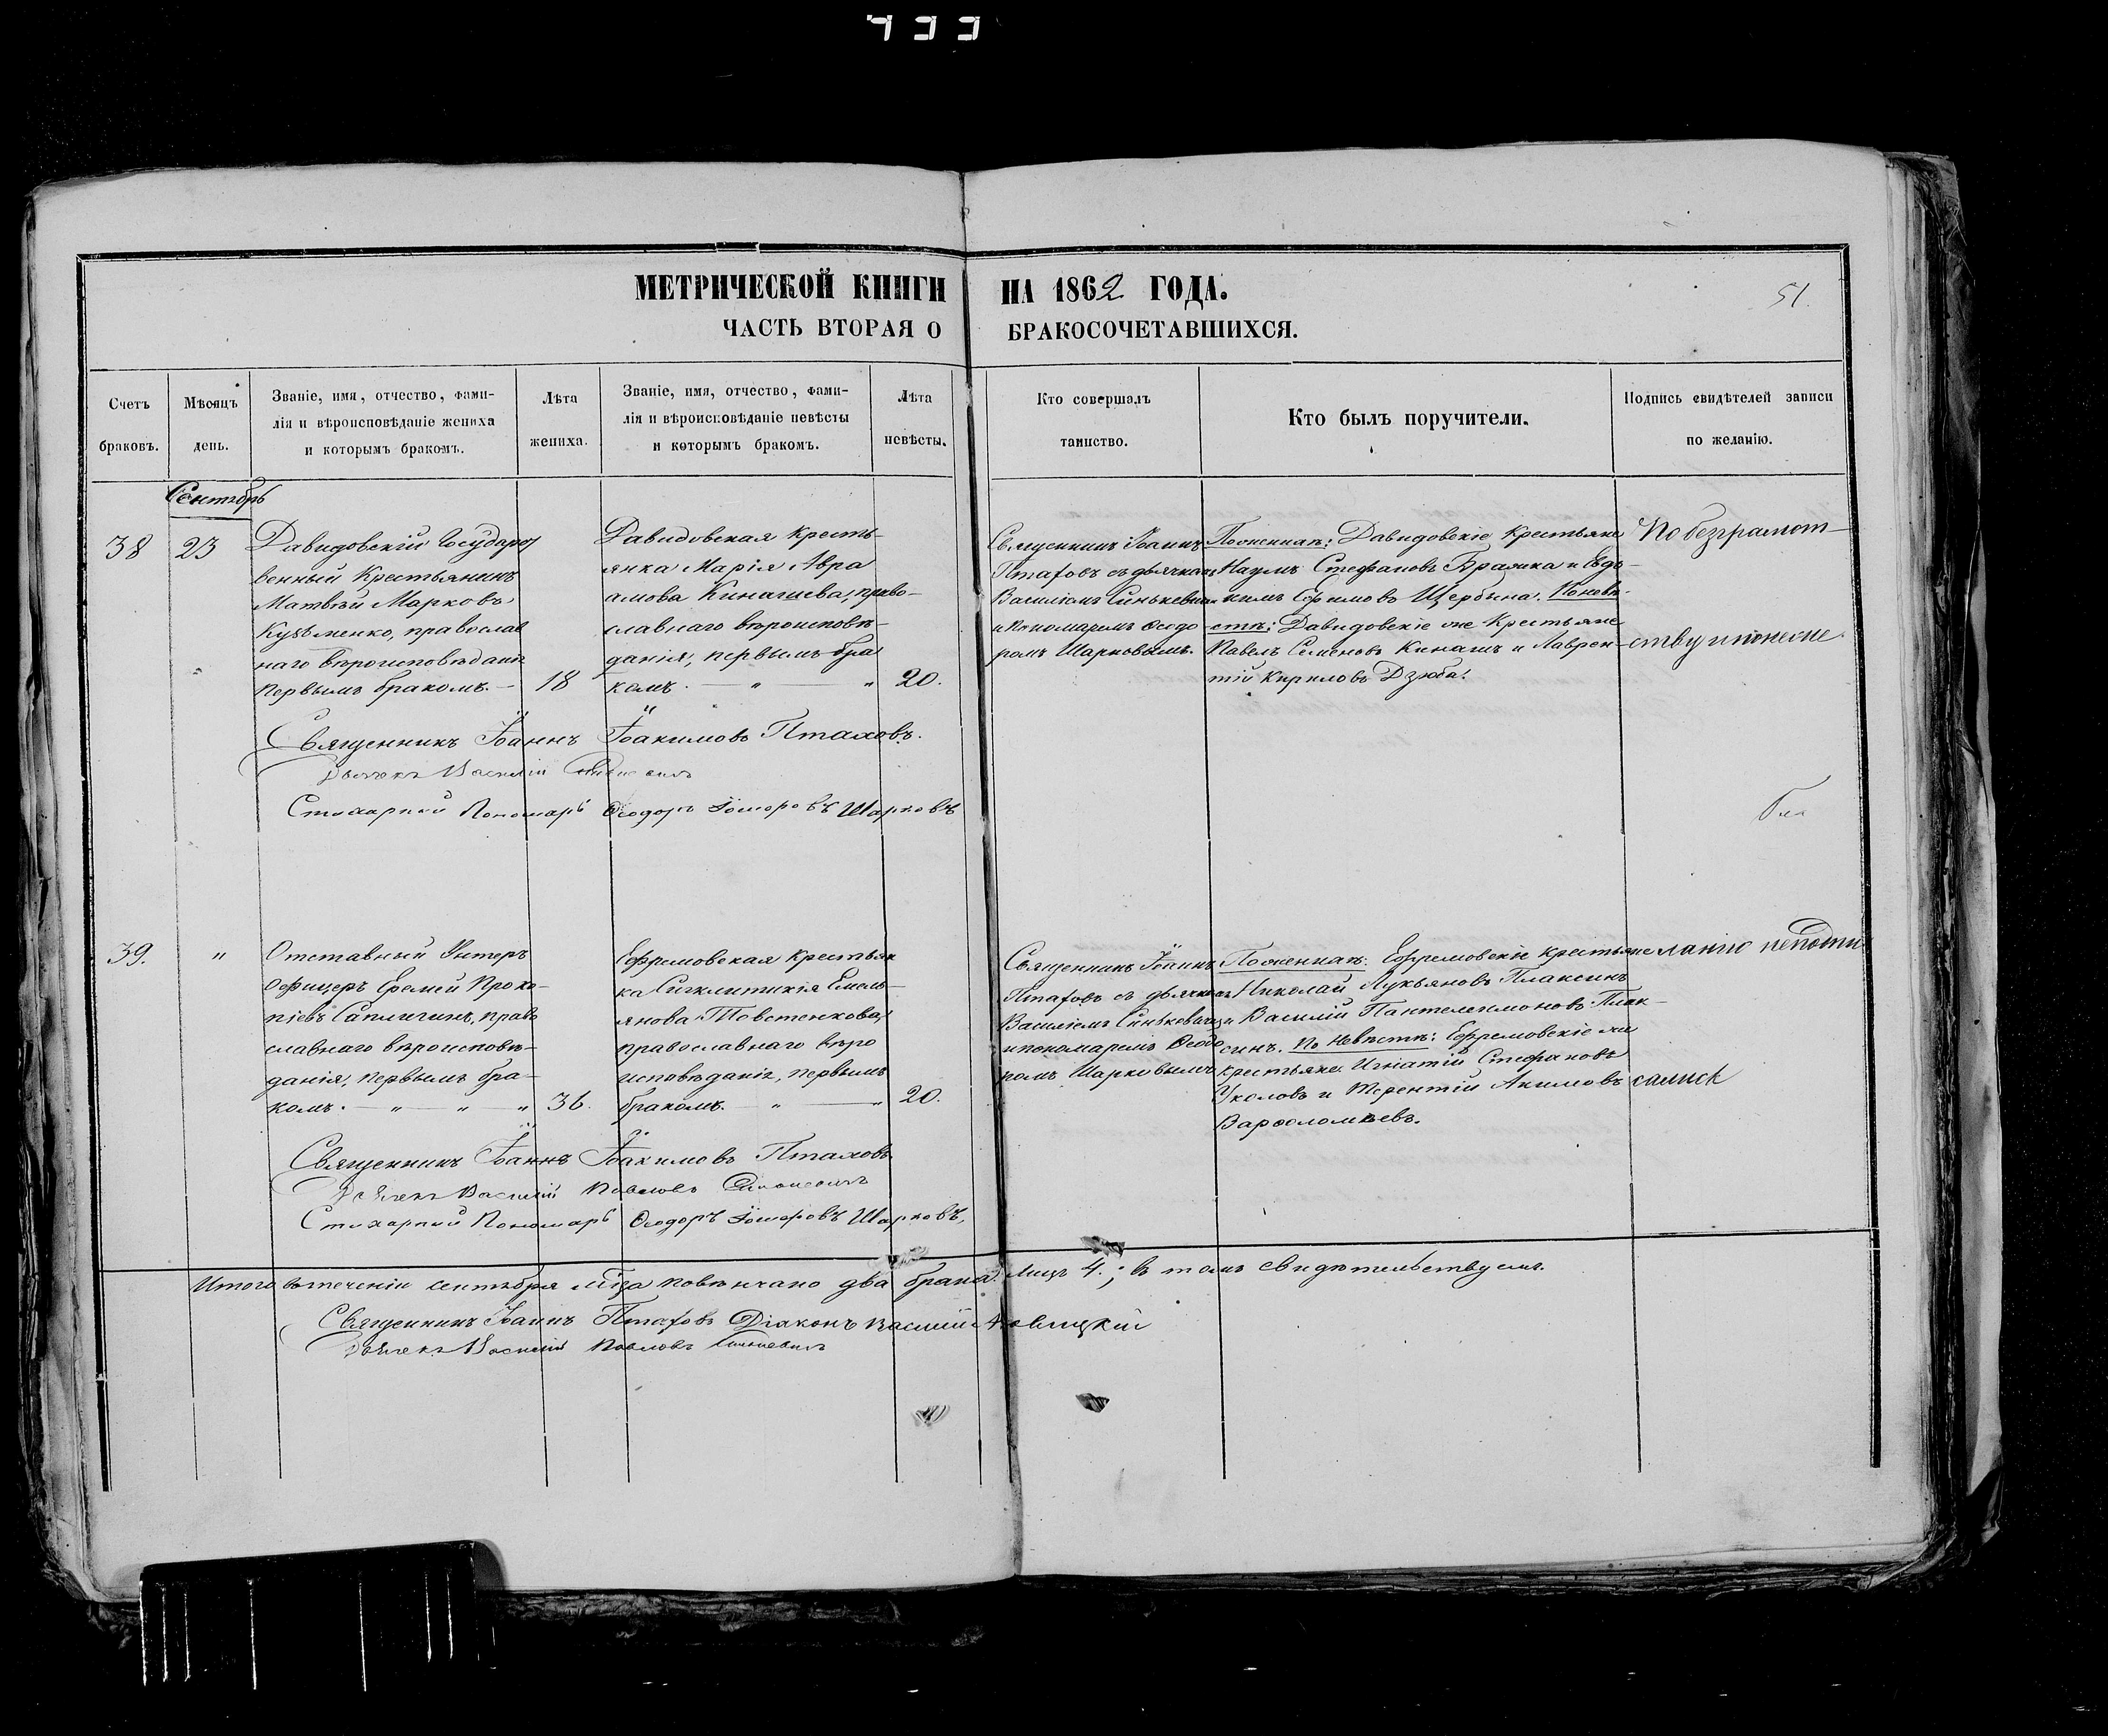 733
МЕТРИЧЕСКОЙ КНИГИ НА 1862 ГОДА.
51.
ЧАСТЬ ВТОРАЯ О БРАКОСОЧЕТАВШИХСЯ.
Счетъ браковъ.
Мѣсяцъ день.
Званіе, имя, отчество, фами-
лія и вѣроисповѣданіе жениха
и которымъ бракомъ.
Лѣта жениха.
Званіе, имя, отчество, фами-
лія и вѣроисповѣданіе невѣсты
и которымъ бракомъ.
Лѣта невѣсты.
Кто совершалъ
таинство.
Кто былъ поручители.
Подпись свидѣтелей записи
по желанію.
Сентябрь
38
23
Давидовскій Государст
венный Крестьянинъ
Матвѣй Марковъ
Кузьменко, православ
наго вѣроисповѣданія
первымъ бракомъ. —
18
Давидовская кресть-
янка Марія Авра
амова Кинашева, право-
славнаго вѣроисповѣ-
данія, первымъ бра
комъ. „ — „
20.
Священникъ Іоаннъ
Птаховъ съ дьячкомъ
Василіемъ Синькевичемъ
и пономаремъ Ѳеодо
ромъ Шарковымъ.
По женихѣ: Давидовскіе Крестьяне
Наумъ Стефановъ Бражка и Евдо-
кимъ Ефимовъ Щербина. По невѣ-
стѣ: Давидовскіе же Крестьяне
Павелъ Семеновъ Кинашъ и Лаврен-
тій Кириловъ Дзюба.
По безграмот-
ству и поне же
Священникъ Іоаннъ Іоакимовъ Птаховъ.
Дьячекъ Василій Синькевичъ
Стихарный Пономарь Ѳеодоръ Шарковъ
39.
„
Отставный Унтеръ
Офицеръ Еремей Проко-
піевъ Сапличинъ, право
славнаго вѣроисповѣ-
данія, первымъ бра-
комъ. — „ — „ — „
36.
Ефремовская крестьян
ка Сигклитикія Емель-
янова Товстенкова,
православнаго вѣро
исповѣданія, первымъ
бракомъ. — „ — „
20.
Священникъ Іоаннъ
Птаховъ съ дьячкомъ
Василіемъ Синькевичемъ
и пономаремъ Ѳеодо
ромъ Шарковымъ
По женихѣ: Ефремовскіе крестьяне
Николай Лукьяновъ Плаксинъ
и Василій Пантелеимоновъ Плак-
синъ. По Невѣстѣ: Ефремовскіе же
крестьяне Игнатій Стефановъ
Уколовъ и Терентій Акимовъ
Варѳоломѣевъ.
ланію неподпи
сались
Священникъ Іоаннъ Іоакимовъ Птаховъ
Дьячекъ Василій Павловъ Синькевичъ
Стихарный Пономарь Ѳеодоръ Шарковъ,
Итого втеченіи сентября мѣца повѣнчано два брака. Лицъ 4.; въ томъ свидѣтельствуемъ.
Священникъ Іоаннъ Птаховъ Діаконъ Василій
Дьячекъ Василій Павловъ Синькевичъ